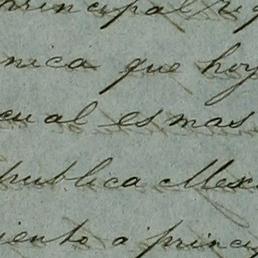 principal
nica que hoy
cual es mas
publica Mex
iento a princi